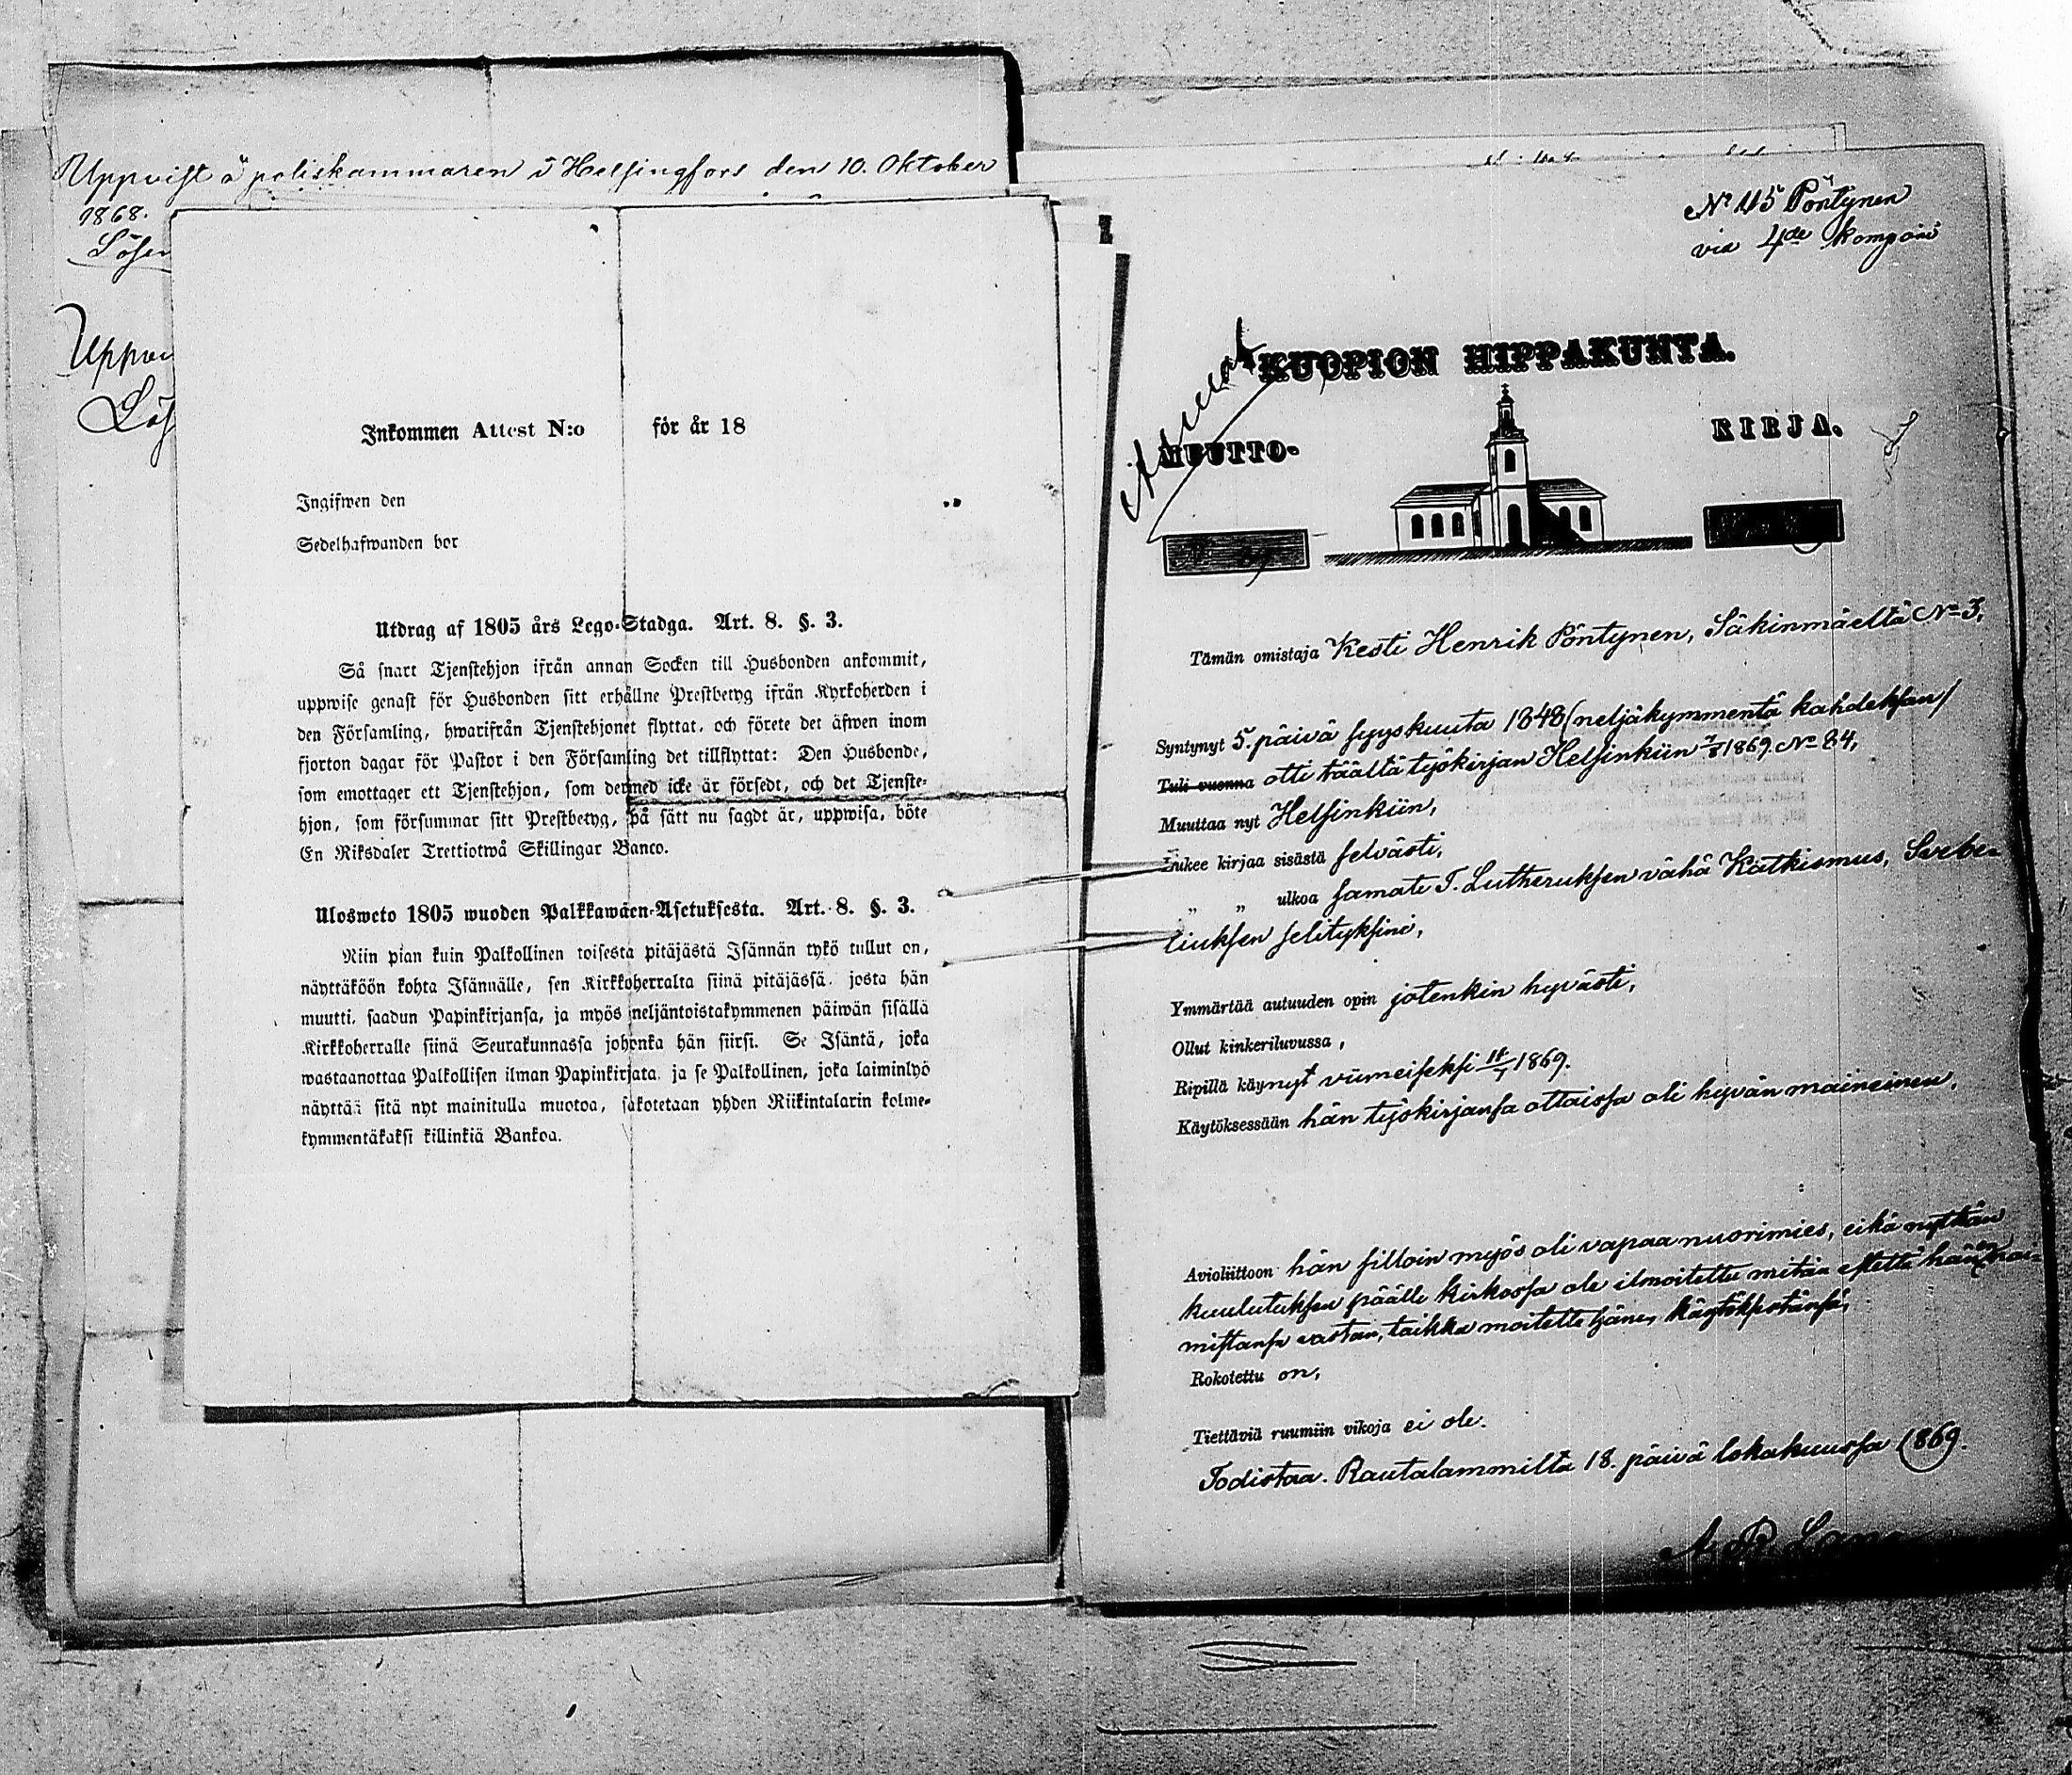 Uppvist å poliskammaren i Helsingfors den 10. Oktober
1868.
Uppvi
Inkommen Attest N:o för år 18
Ingifwen den
Sedelhafwanden bor
Utdrag af 1805 års Lego-Stadga. Art. 8. §. 3.
Så snart Tjenstehjon ifrån annan Socken till Husbonden ankommit,
uppwise genast för Husbonden sitt erhållne Prestbetyg ifrån Kyrkoherden i
den Församling, hwarifrån Tjenstehjonet flyttat, och förete det äfwen inom
fjorton dagar för Pastor i den Församling det tillflyttat: Den Husbonde,
som emottager ett Tjenstehjon, som dermed icke är försedt, och det Tjenste-
hjon, som försummar sitt Prestbetyg, på sätt nu sagdt är, uppwisa, böte
En Riksdaler Trettiotwå Skillingar Banco.
Ulosweto 1805 wuoden Palkkawäen-Asetuksesta. Art. 8. §. 3.
Niin pian kuin Palkollinen toisesta pitäjästä Isännän tykö tullut on,
näyttäköön kohta Isännälle, sen Kirkkoherralta siinä pitäjässä, josta hän
muutti, saadun Papinkirjansa, ja myös neljäntoistakymmenen päiwän sisällä
Kirkkoherralle siinä Seurakunnassa johonka hän siirsi. Se Isäntä, joka
wastaanottaa Palkollisen ilman Papinkirjata, ja se Palkollinen, joka laiminlyö
näyttää sitä nyt mainitulla muotoa, sakotetaan yhden Riikintalarin kolme-
kymmentäkaksi killinkiä Bankoa.
No 45 Pöntynen
vid 4de kompani
KUOPION HIPPAKUNTA.
MUUTTO- KIRJA.
Tämän omistaja Kesti Henrik Pöntynen, Säkinmäeltä No 3,
Syntynyt 5. päivä syyskuuta 1848 (neljäkymmentä kahdeksan)
Tuli vuonna otti täältä työkirjan Helsinkiin 1869 No 84,
Muuttaa nyt Helsinkiin,
Lukee kirjaa sisästä selvästi,
" " ulkoa samate T. Lutheruksen vähä Katkismus, Svebe-
liuksen selityksine,
Ymmärtää autuuden opin jotenkin hyvästi,
Ollut kinkeriluvussa,
Ripillä käynyt viimeiseksi 1869.
Käytöksessään hän työkirjansa ottaissa oli hyvän maineinen,
Avioliittoon hän silloin myös oli vapaa nuorimies, eikä nytkän
kuulutuksen päälle kirkossa ole ilmoitettu mitän estettä hänen nai-
mistansa vastan, taikka moitetta hänen käytöksestänsä,
Rokotettu on,
Tiettäviä ruumiin vikoja ei ole.
Todistaa. Rautalammilta 18. päivä lokakuussa 1869.